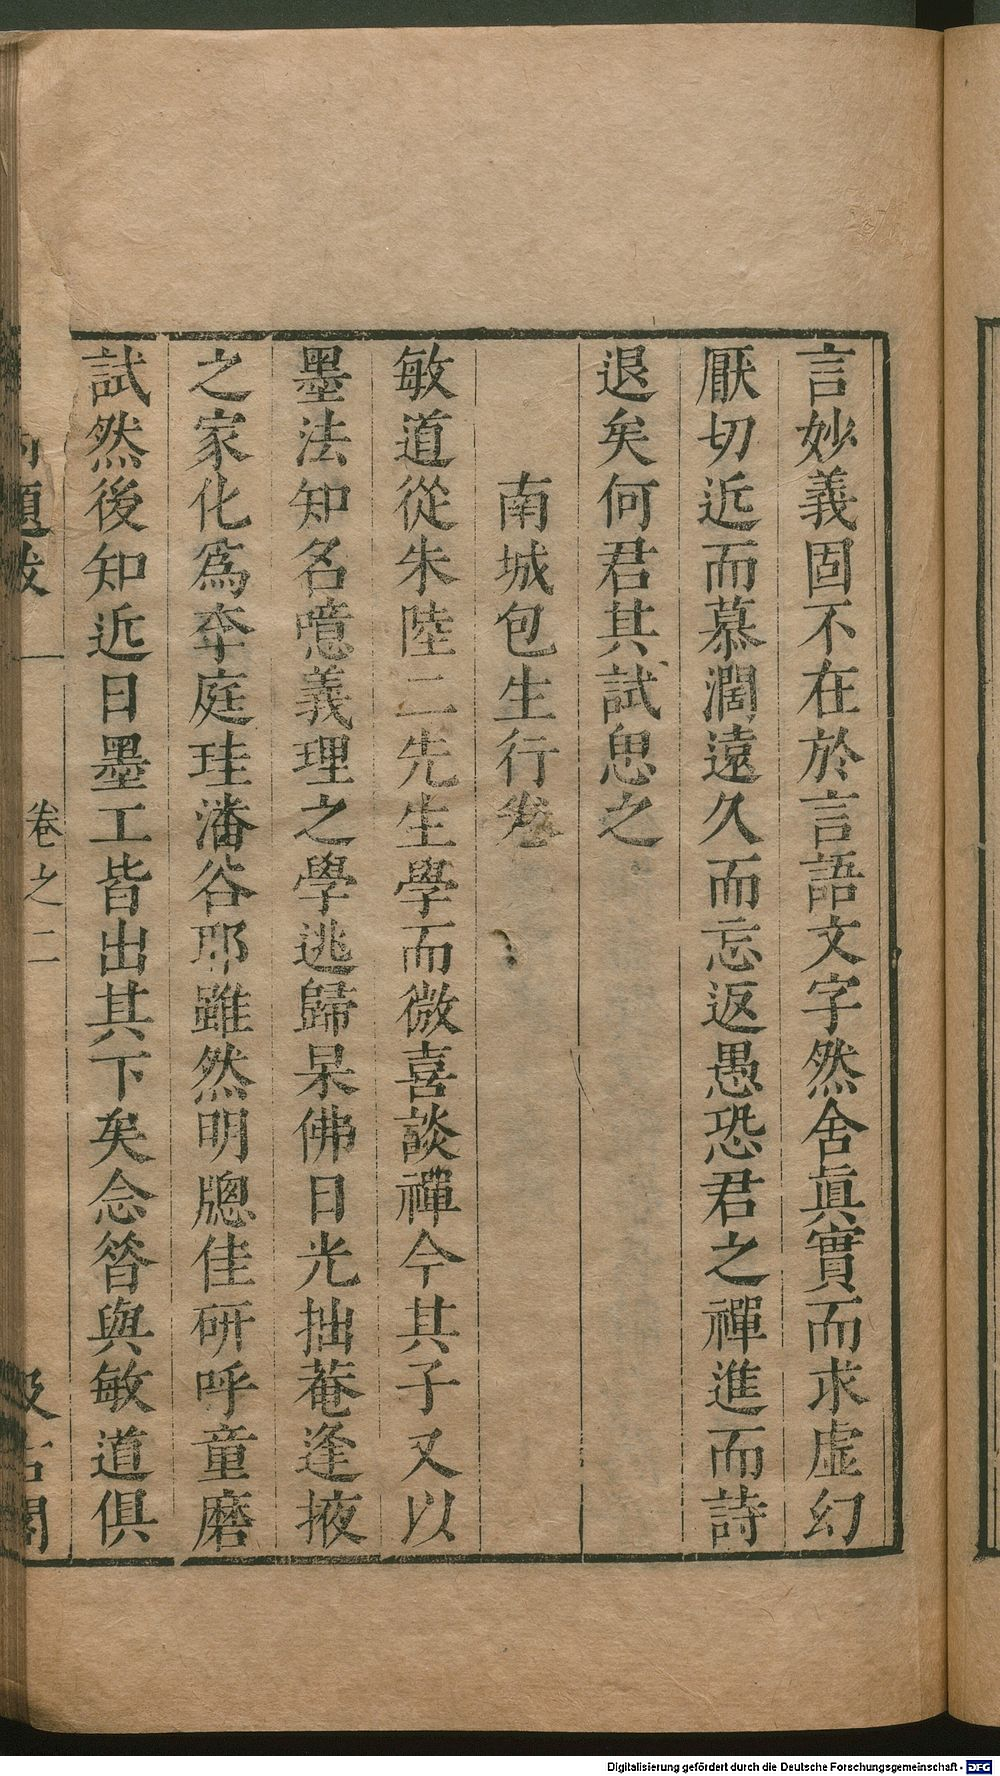 言妙義固不在於言語文字然舍眞實而求虛幻
厭切近而慕濶遠久而忘返愚恐君之禪進而詩
退矣何君其試思之
南城包生行卷
敏道從朱陸二先生學而微喜談禪今其子又以
墨法知名噫義理之學逃歸杲佛日光拙菴逢掖
之家化爲李庭珪潘谷耶雖然明牎佳硏呼童磨
試然後知近日墨工皆出其下矣念昝與敏道俱
題跋
卷之二
汲古閣
Digitalisierung gefördert durch die Deutsche Forschungsgemeinschaft - DFG